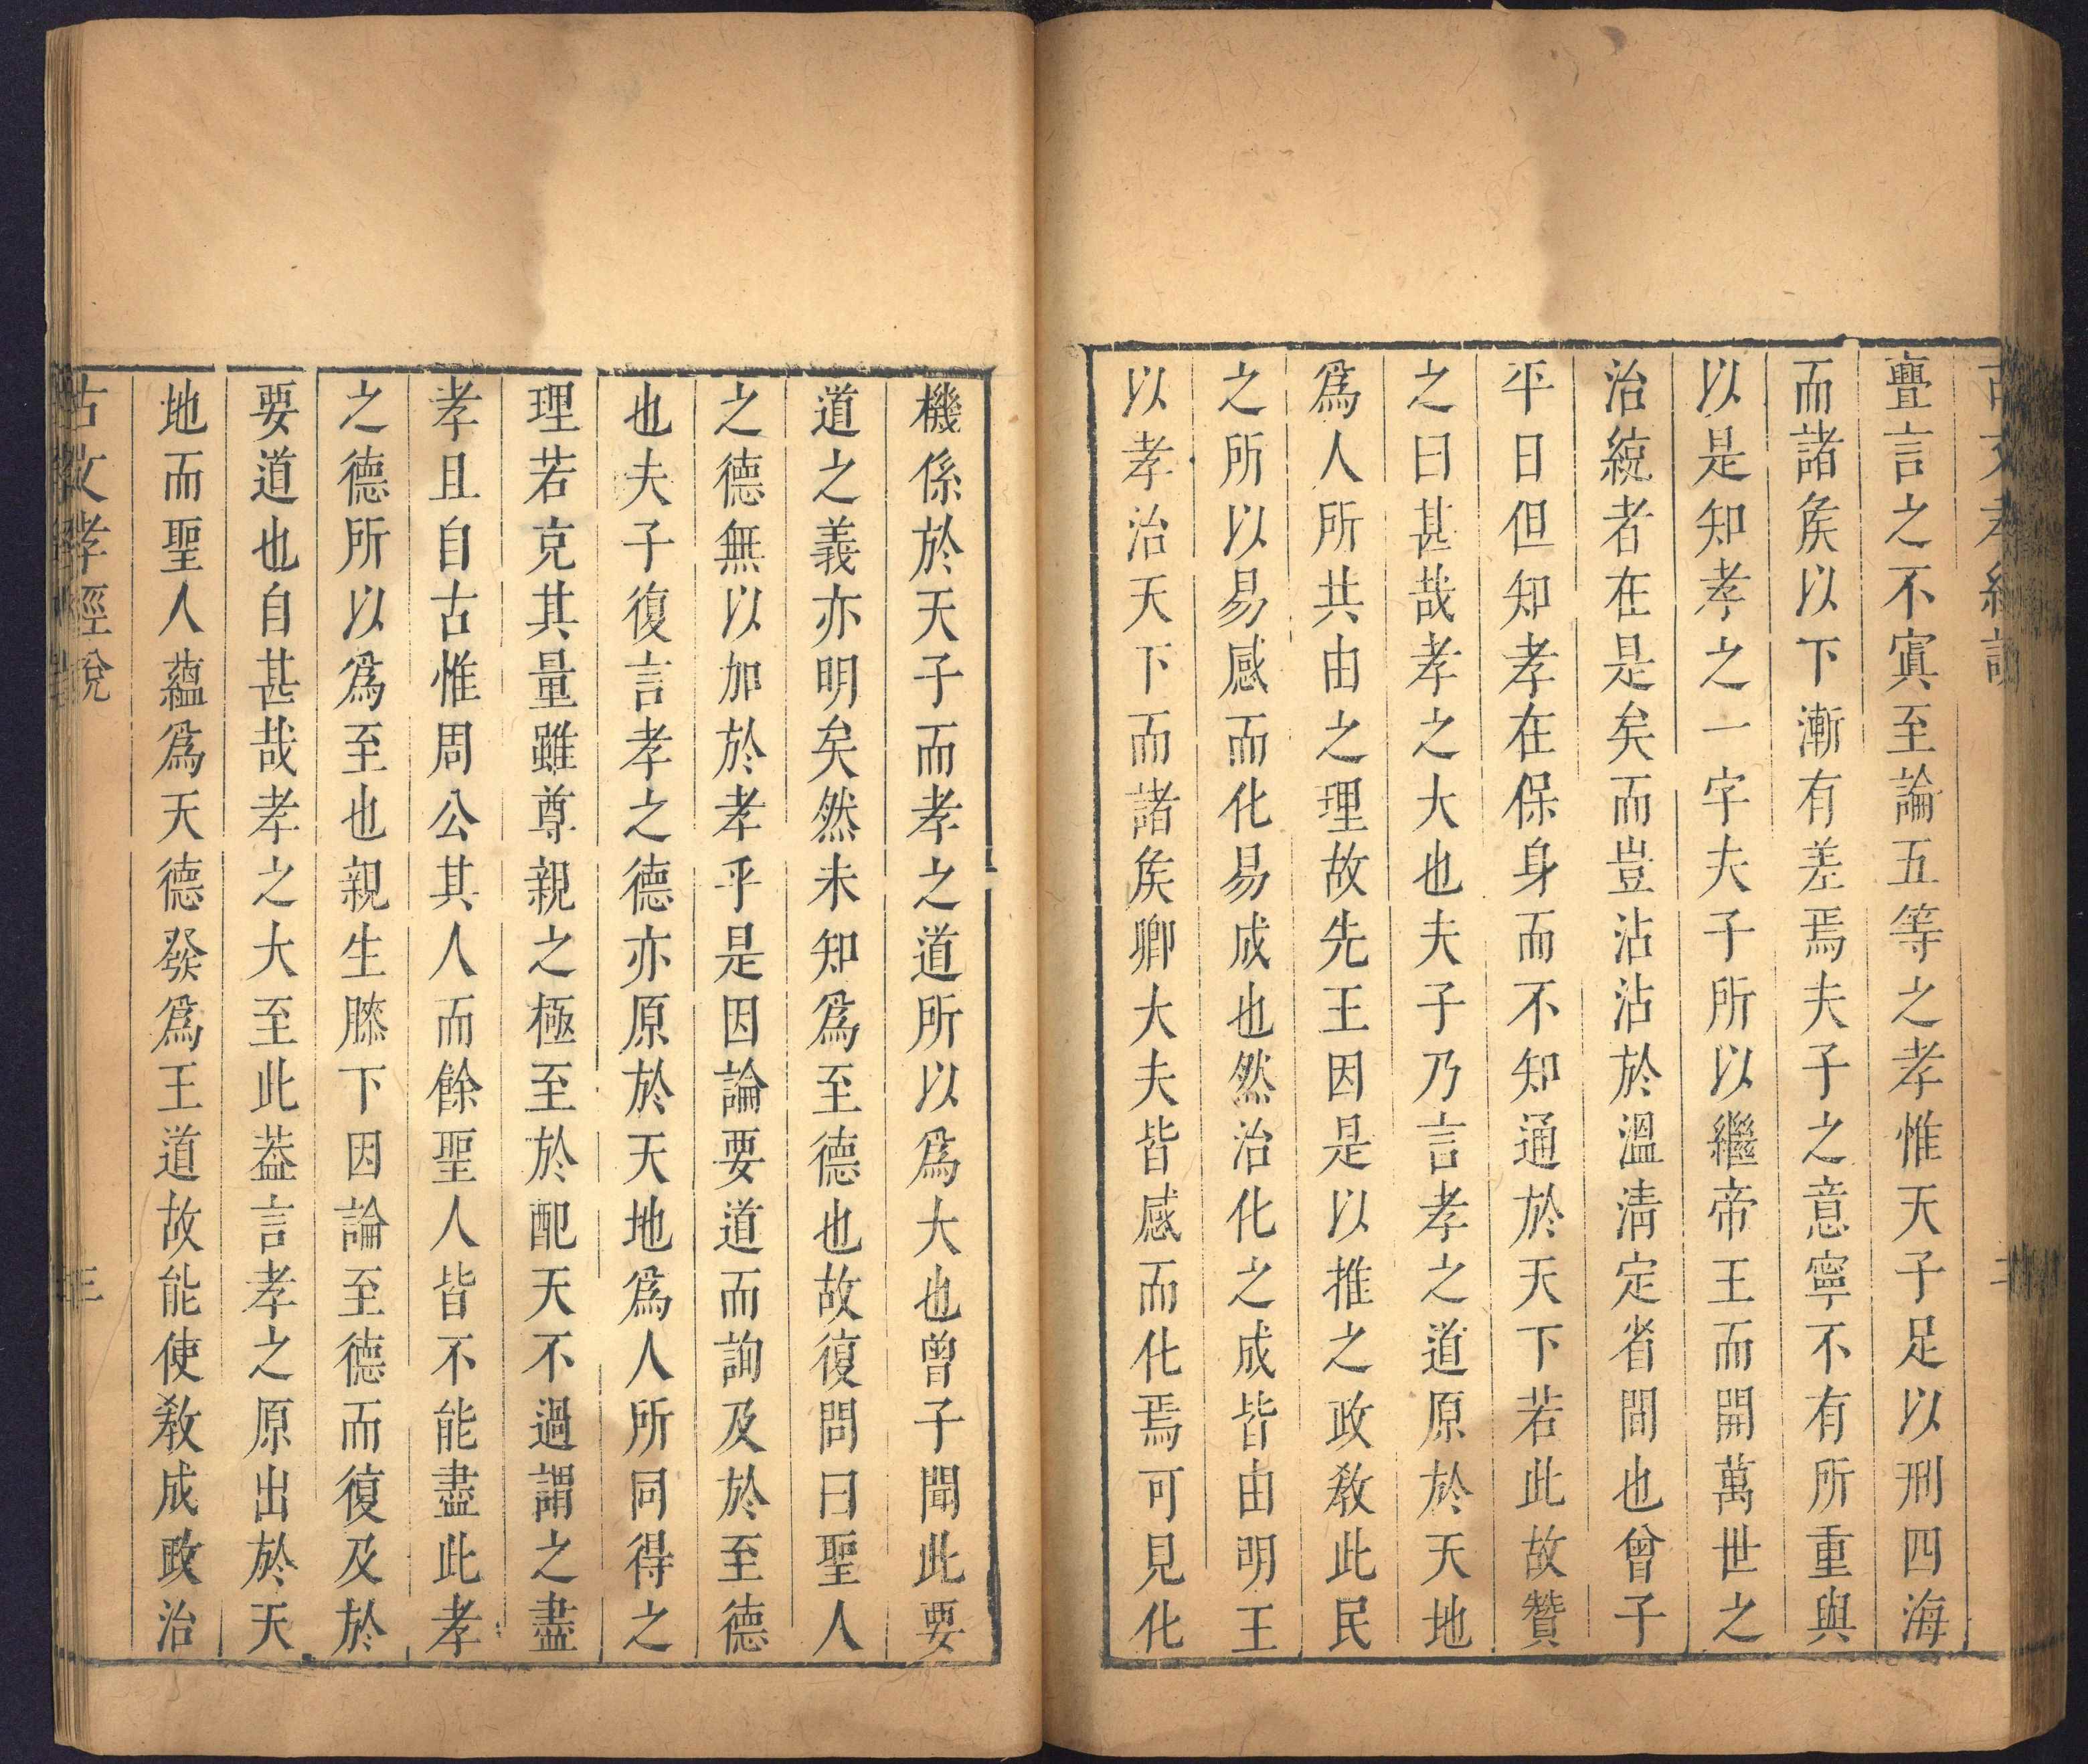 古文孝經說
二
亹言之不寘至論五等之孝惟天子足以刑四海
而諸矦以下漸有差焉夫子之意寧不有所重與
以是知孝之一字夫子所以繼帝王而開萬世之
治統者在是矣而豈沾沾於溫凊定省間也曾子
平日但知孝在保身而不知通於天下若此故贊
之曰甚哉孝之大也夫子乃言孝之道原於天地
爲人所共由之理故先王因是以推之政敎此民
之所以易感而化易成也然治化之成皆由明王
以孝治天下而諸矦卿大夫皆感而化焉可見化
機係於天子而孝之道所以爲大也曾子聞此要
道之義亦明矣然未知爲至德也故復問曰聖人
之德無以加於孝乎是因論要道而詢及於至德
也夫子復言孝之德亦原於天地爲人所同得之
理若克其量雖尊親之極至於配天不過謂之盡
孝且自古惟周公其人而餘聖人皆不能盡此孝
之德所以爲至也親生膝下因論至德而復及於
要道也自甚哉孝之大至此葢言孝之原出於天
地而聖人蘊爲天德發爲王道故能使敎成政治
古文孝經說
三